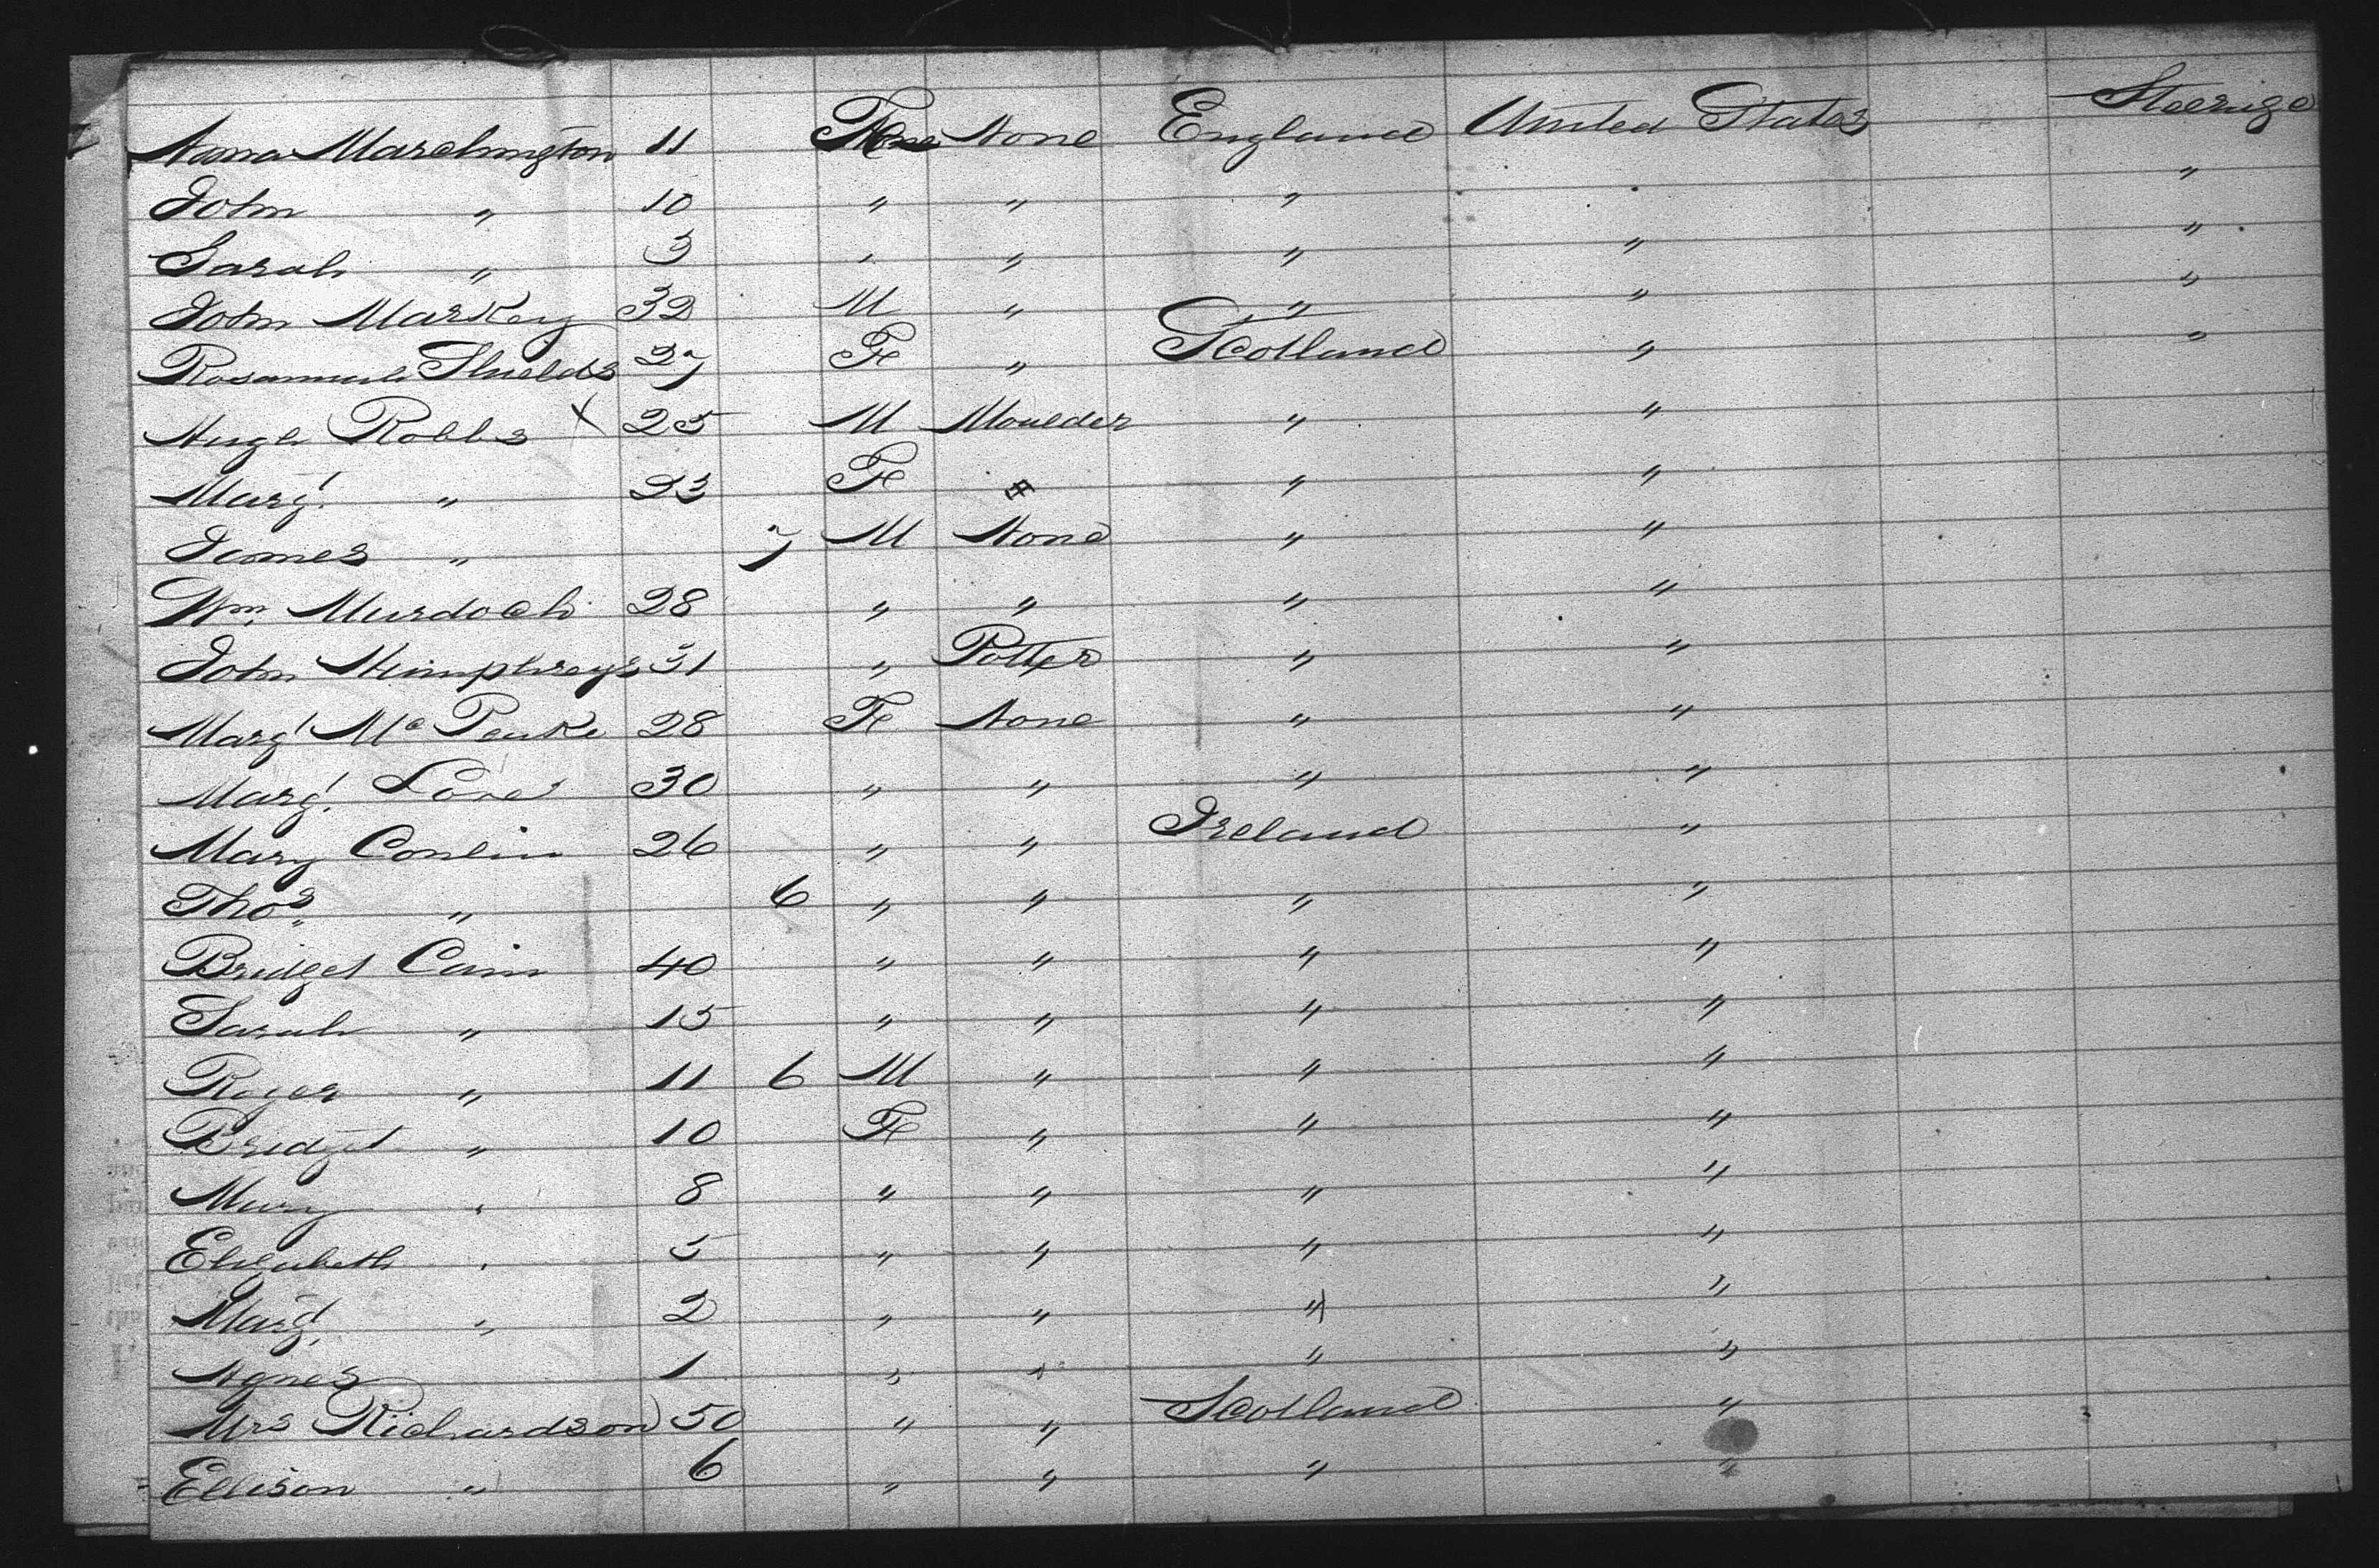 Anna Marchington 11 Fe None England United States Steerage
John " 10 " " " " "
Sarah " 3 " " " " "
John Markey 32 M " " " "
Rosannah Shields 27 Fe " Scotland " "
Hugh Robbs X 25 M Moulder " "
Margt. " 23 Fe " "
James " 7 M None " "
Wm. Murdoch 28 " " " "
John Humphreys 31 " Potter " "
Margt McPeake 28 Fe None " "
Margt. Love 30 " " " "
Mary Conlin 26 " " Ireland "
Thos. " 6 " " " "
Bridget Cain 40 " " " "
Sarah " 15 " " " "
Roger " 11 6 M " " "
Bridget " 10 Fe " " "
Mary " 8 " " " "
Elizabeth " 5 " " " "
Margt. " 2 " " " "
Agnes 1 " " " "
Mrs Richardson 50 " " Scotland "
Ellison " 6 " " " "